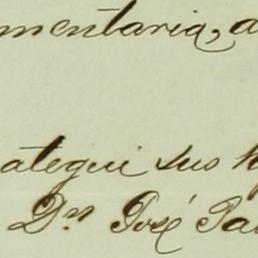 mentaria, a
ategui sus h
Dn José Pa